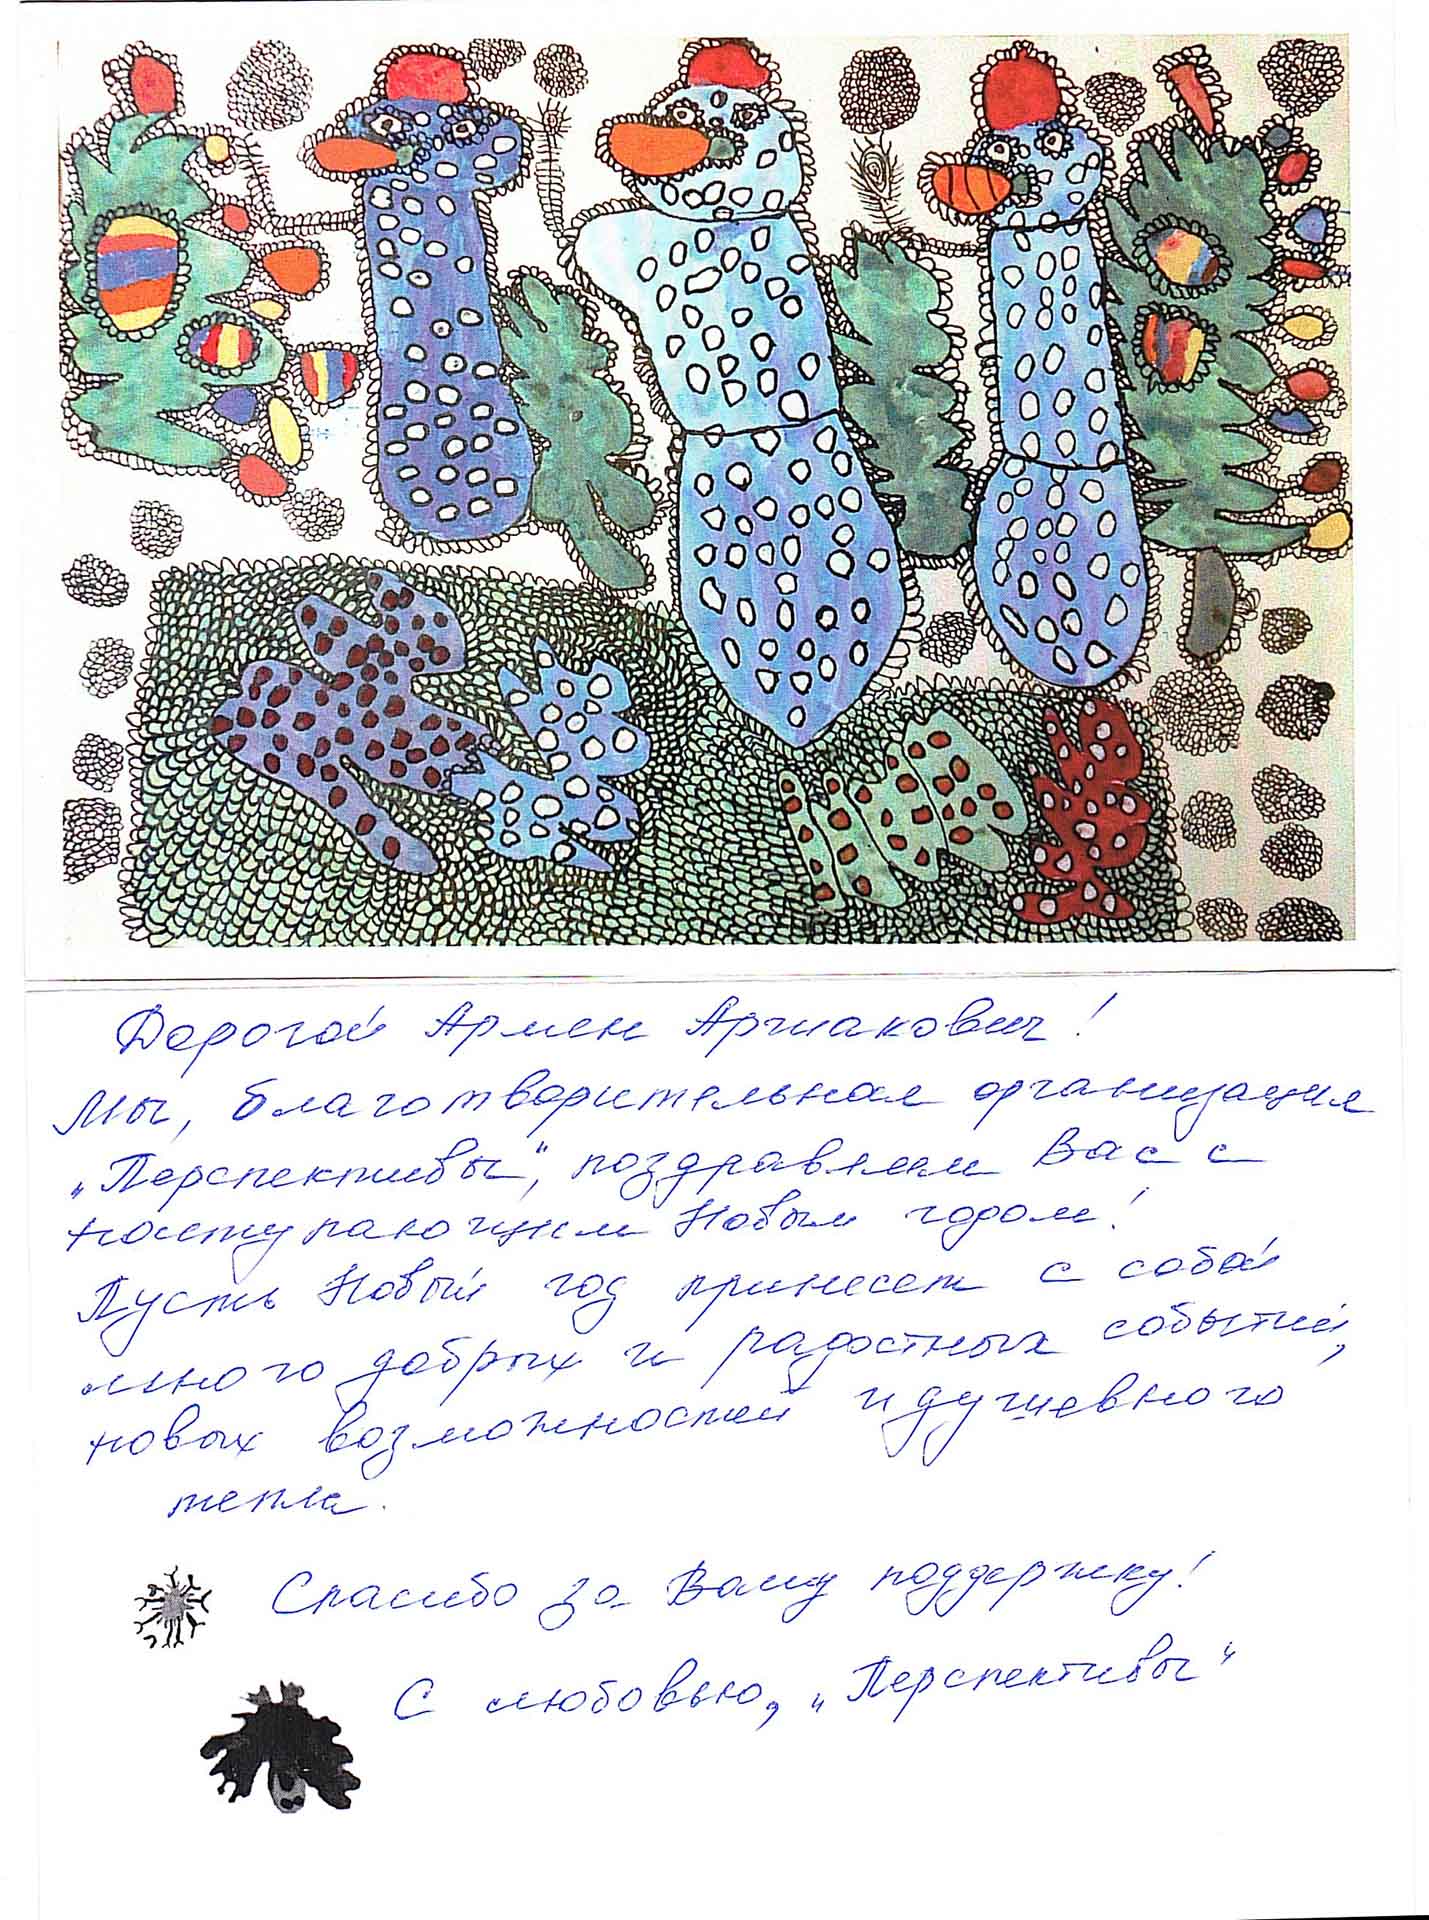 Дорогой Армен Аршакович!
Мы, благотворительная организация
„Перспективы“, поздравляем Вас с
наступающим Новым годом!
Пусть Новый год принесет с собой
много добрых и радостных событий,
новых возможностей и душевного
тепла.
Спасибо за Вашу поддержку!
С любовью, „Перспективы“